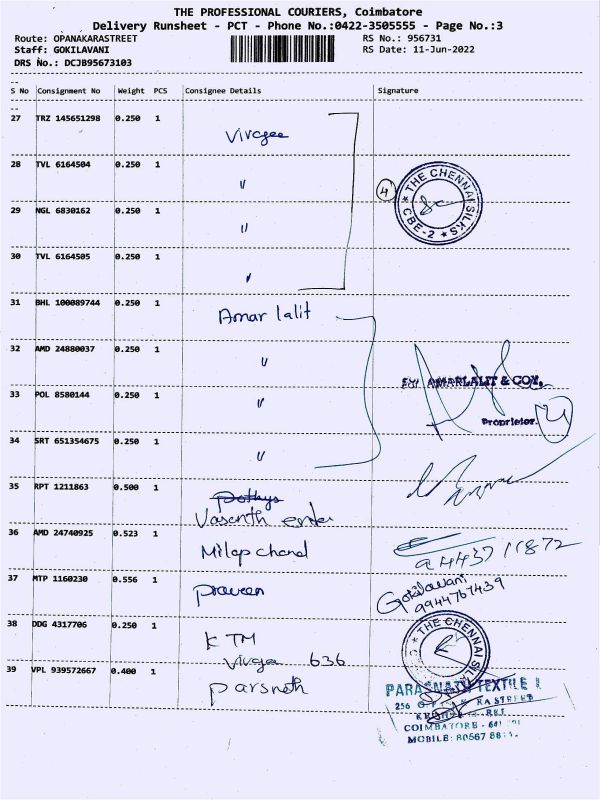 THE PROFESSIONAL COURIERS, Coimbatore
Delivery Runsheet - PCT - Phone No.:0422-3505555 - Page No.:3
Route: OPANAKARASTREET
RS No.: 956731
Staff: GOKILAVANI
RS Date: 11-Jun-2022
DRS No.: DCJB95673103
S No Consignment No Weight PCS Consignee Details Signature
27 TRZ 145651298 0.250 1
28 TVL 6164504 0.250 1 〃
4 THE CHENNAI SILKS ★ CBE-2 ★
29 NGL 6830162 0.250 1 〃
30 TVL 6164505 0.250 1 〃
31 BHL 100089744 0.250 1 Amar lalit
32 AMD 24880037 0.250 1 〃
AMARLALIT & COY,
33 POL 8580144 0.250 1 〃
Proprietor.
34 SRT 651354675 0.250 1 〃
35 RPT 1211863 0.500 1 pothys
Vasanth
36 AMD 24740925 0.523 1 Milap chand
9443711872
37 MTP 1160230 0.556 1 praveen
Gokilavani
9944767439
38 DDG 4317706 0.250 1 KTM
THE CHENNAI SILKS
636
39 VPL 939572667 0.400 1 parsnath
PARASNATH TEXTILE
256
STREET
COIMBATORE - 641
MOBILE: 80567